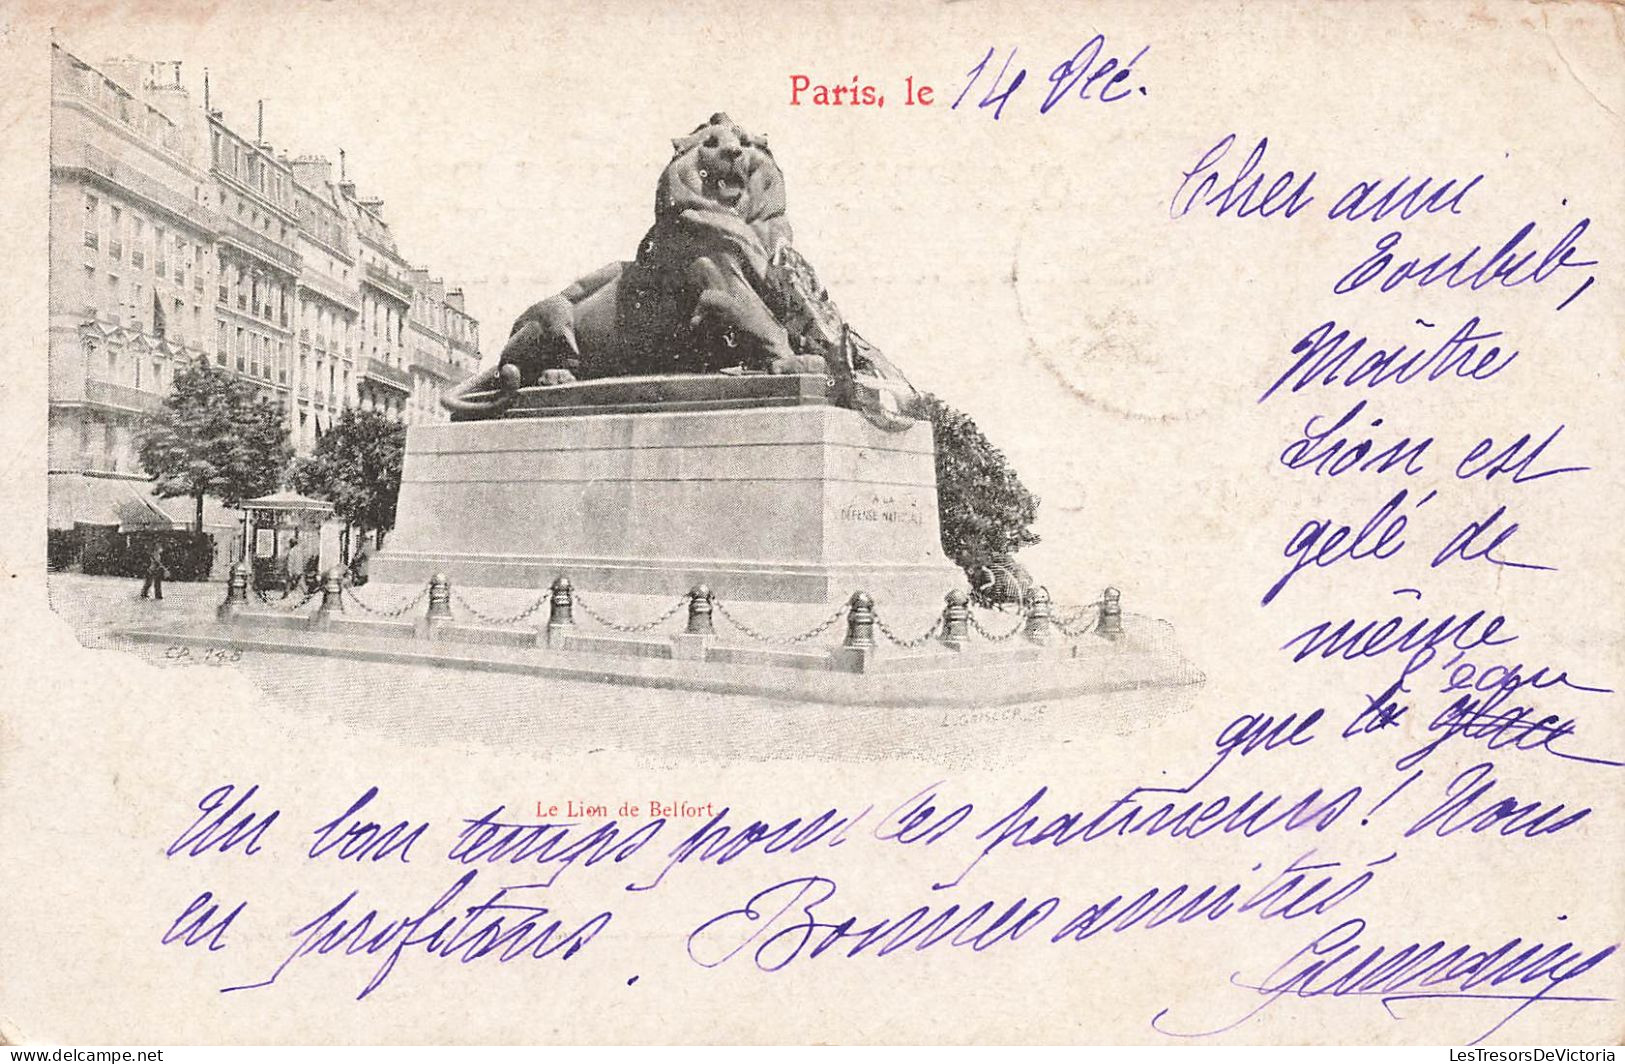 Paris, le 14 Déc.
Cher ami
Toubib,
Maître
Lion est
gelé de
même
l'eau
que la glace
Un bon temps pour les patineurs! Nous
en profitons. Bonnes amitiés
Germaine
A LA
DÉFENSE NATIONALE
CP. 148
Le Lion de Belfort
LesTresorsDeVictoria
https://www.delcampe.net